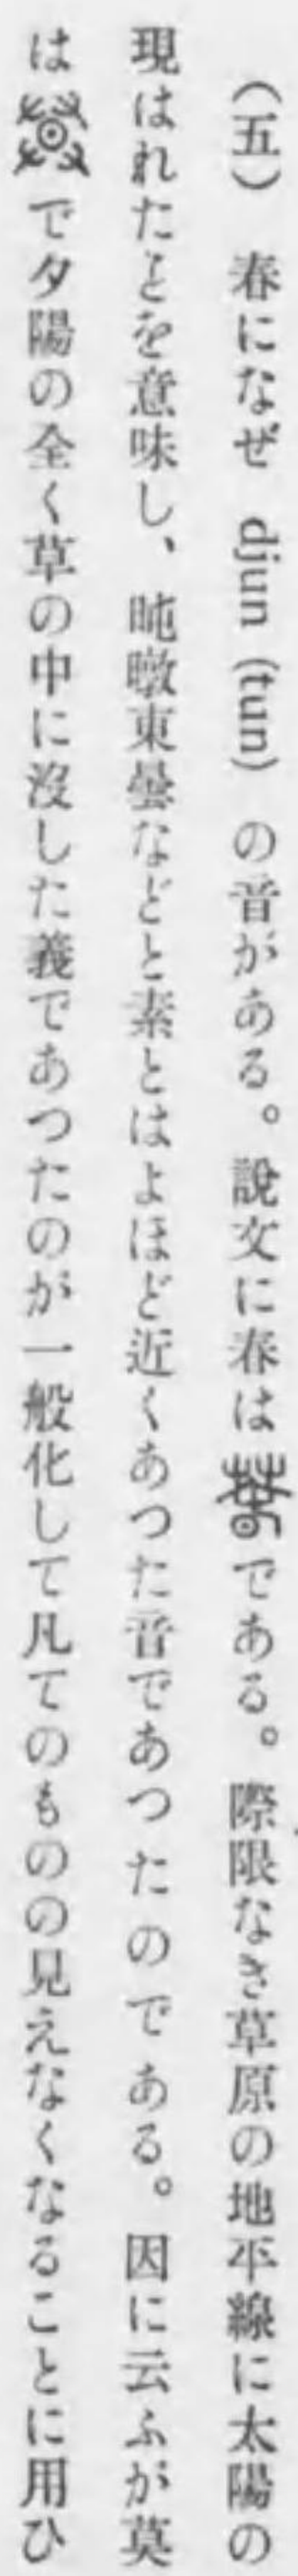 （五）　春になぜ djun (tun) の音がある。說文に春はである。際限なき草原の地平線に太陽の
現はれたとを意味し、旽暾東曇などと素とはよほど近くあつた音であつたのである。因に云ふが莫
はで夕陽の全く草の中に沒した義であつたのが一般化して凡てのものの見えなくなることに用ひ